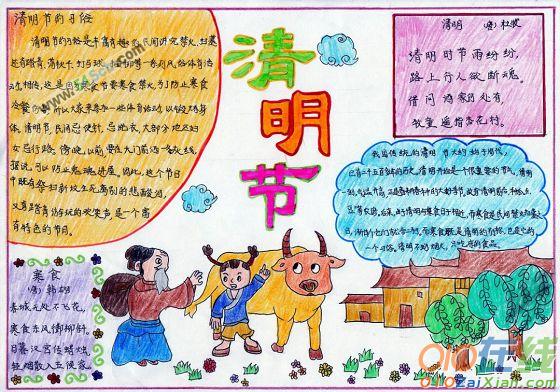 清明节的习俗
清明节的习俗是丰富有趣的,民间讲究禁火、扫墓
还有踏青、荡秋千、打马球、插柳等一系列风俗体育活
动。相传,这是因为寒食节要寒食禁火,为了防止寒食
冷餐伤身,所以大家来参加一些体育活动,以锻炼身
体。清明节,民间忌使针,忌洗衣,大部分地区妇
女忌行路。傍晚以前,要在大门前洒一条灰线,
据说可以防止鬼魂进屋。因此,这个节日
中既有祭扫新坟生死离别的悲酸泪,
又有踏青游玩的欢笑声,是一个富
有特色的节日。
清明节
清明 (唐)杜牧
清明时节雨纷纷,
路上行人欲断魂。
借问酒家何处有,
牧童遥指杏花村。
我国传统的清明节大约始于周代,
已有二千五百多年的历史。清明开始是一个很重要的节气,清明
一到,气温升高,正是春耕春种的大好时节,故有清明前后,种瓜点
豆等农谚。后来,由于清明与寒食的日子接近,而寒食是民间禁火扫墓的
日子,渐渐的
寒食
(唐)韩翃
春城无处不飞花,
寒食东风御柳斜。
日暮汉宫传蜡烛,
轻烟散入五侯家。
010在线
010ZaiXian.com